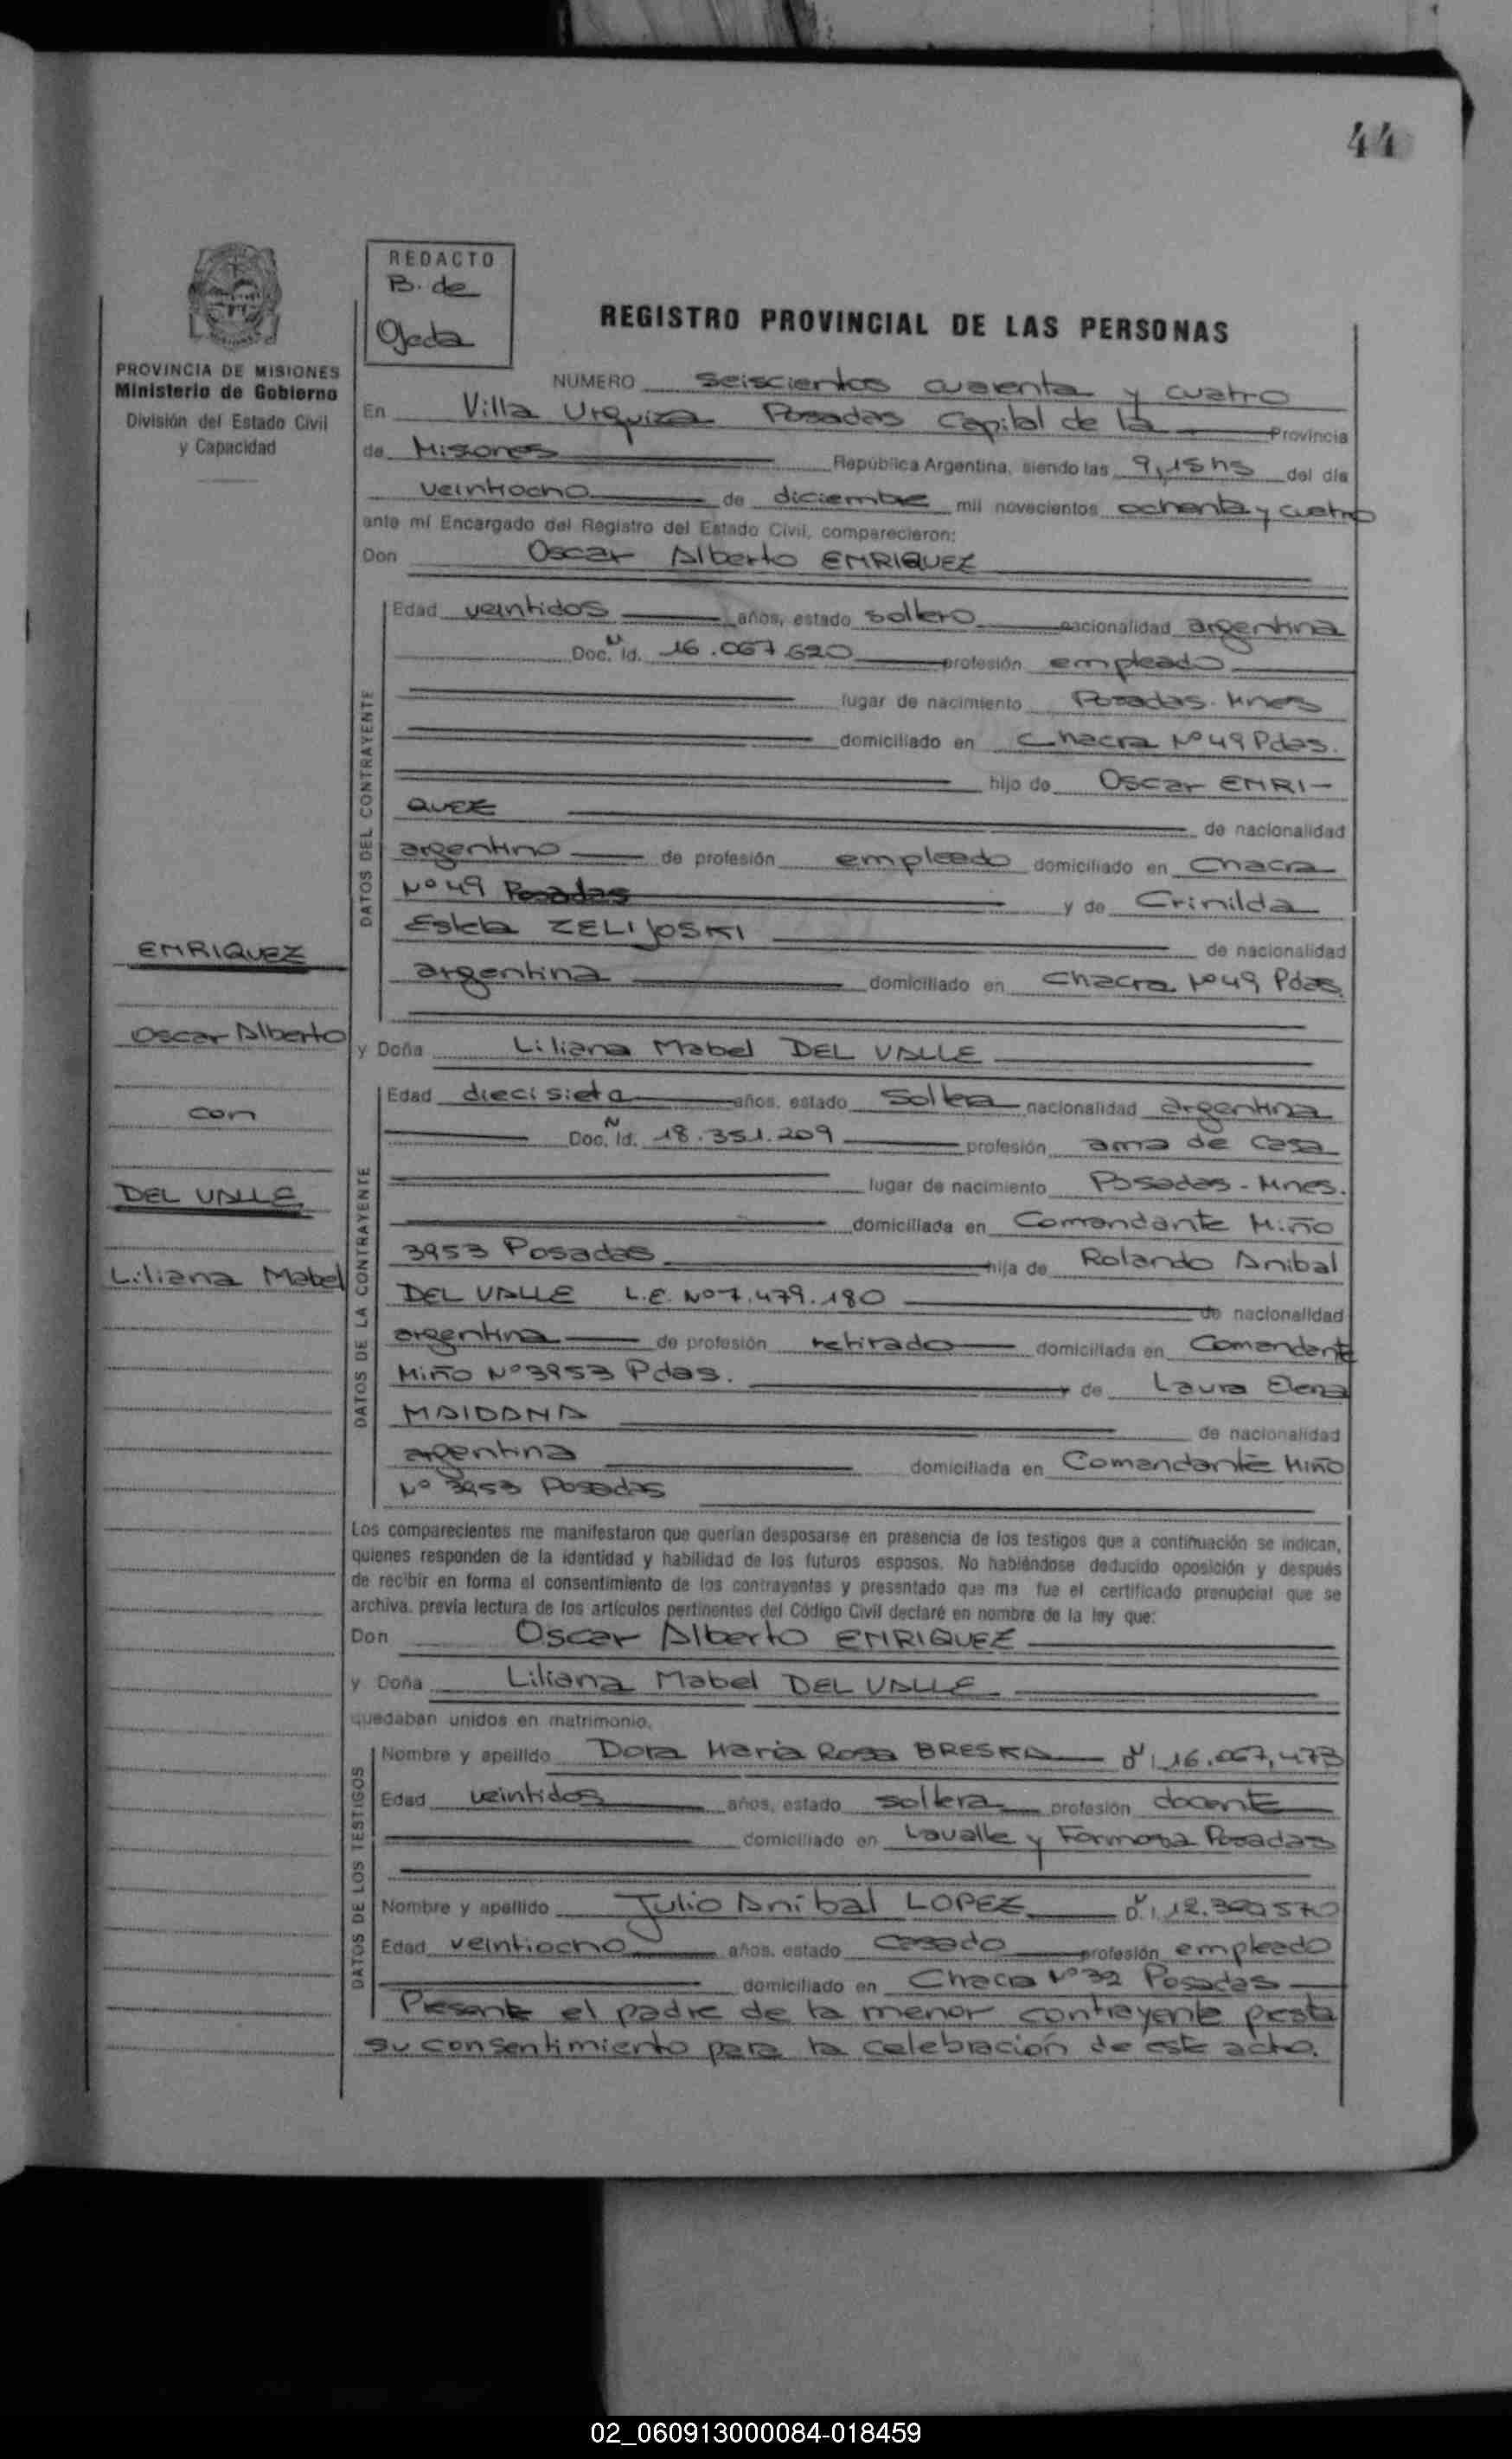 44
REDACTO
B. de
Ojeda
REGISTRO PROVINCIAL DE LAS PERSONAS
PROVINCIA DE MISIONES
Ministerio de Gobierno
División del Estado Civil
y Capacidad
NUMERO seiscientos cuarenta y cuatro
En Villa Urquiza Posadas Capital de la Provincia
de Misiones República Argentina, siendo las 9,15 hs del día
veintiocho de diciembre mil novecientos ochenta y cuatro
ante mí Encargado del Registro del Estado Civil, comparecieron:
Don Oscar Alberto ENRIQUEZ
DATOS DEL CONTRAYENTE
Edad veintidos años, estado soltero nacionalidad argentina
Doc. N Id. 16.067.620 profesión empleado
lugar de nacimiento Posadas. Mnes
domiciliado en Chacra Nº 49 Pdas.
hijo de Oscar ENRI-
QUEZ de nacionalidad
argentino de profesión empleado domiciliado en Chacra
Nº 49 Posadas y de Crinilda
Estela ZELIJOSKI de nacionalidad
argentina domiciliado en Chacra Nº 49 Pdas.
ENRIQUEZ
Oscar Alberto
con
DEL VALLE
Liliana Mabel
y Doña Liliana Mabel DEL VALLE
DATOS DE LA CONTRAYENTE
Edad diecisiete años, estado Soltera nacionalidad argentina
Doc. N Id. 18.351.209 profesión ama de casa
lugar de nacimiento Posadas - Mnes.
domiciliada en Comandante Miño
3953 Posadas hija de Rolando Anibal
DEL VALLE L.E. Nº 7.479.180 de nacionalidad
argentina de profesión retirado domiciliada en Comandante
Miño Nº 3953 Pdas. y de Laura Elena
MAIDANA de nacionalidad
argentina domiciliada en Comandante Miño
Nº 3953 Posadas
Los comparecientes me manifestaron que querían desposarse en presencia de los testigos que a continuación se indican,
quienes responden de la identidad y habilidad de los futuros esposos. No habiéndose deducido oposición y después
de recibir en forma el consentimiento de los contrayentes y presentado que me fue el certificado prenupcial que se
archiva. previa lectura de los artículos pertinentes del Código Civil declaré en nombre de la ley que:
Don Oscar Alberto ENRIQUEZ
y Doña Liliana Mabel DEL VALLE
quedaban unidos en matrimonio.
DATOS DE LOS TESTIGOS
Nombre y apellido Dora Maria Rosa BRESKA DNI 16.067.473
Edad veintidos años, estado soltera profesión docente
domiciliado en Lavalle y Formosa Posadas
Nombre y apellido Julio Anibal LOPEZ DNI 12.
Edad veintiocho años. estado casado profesión empleado
domiciliado en Chacra Nº 32 Posadas
Presente el padre de la menor contrayente presta
su consentimiento para la celebración de este acto.
02_060913000084-018459